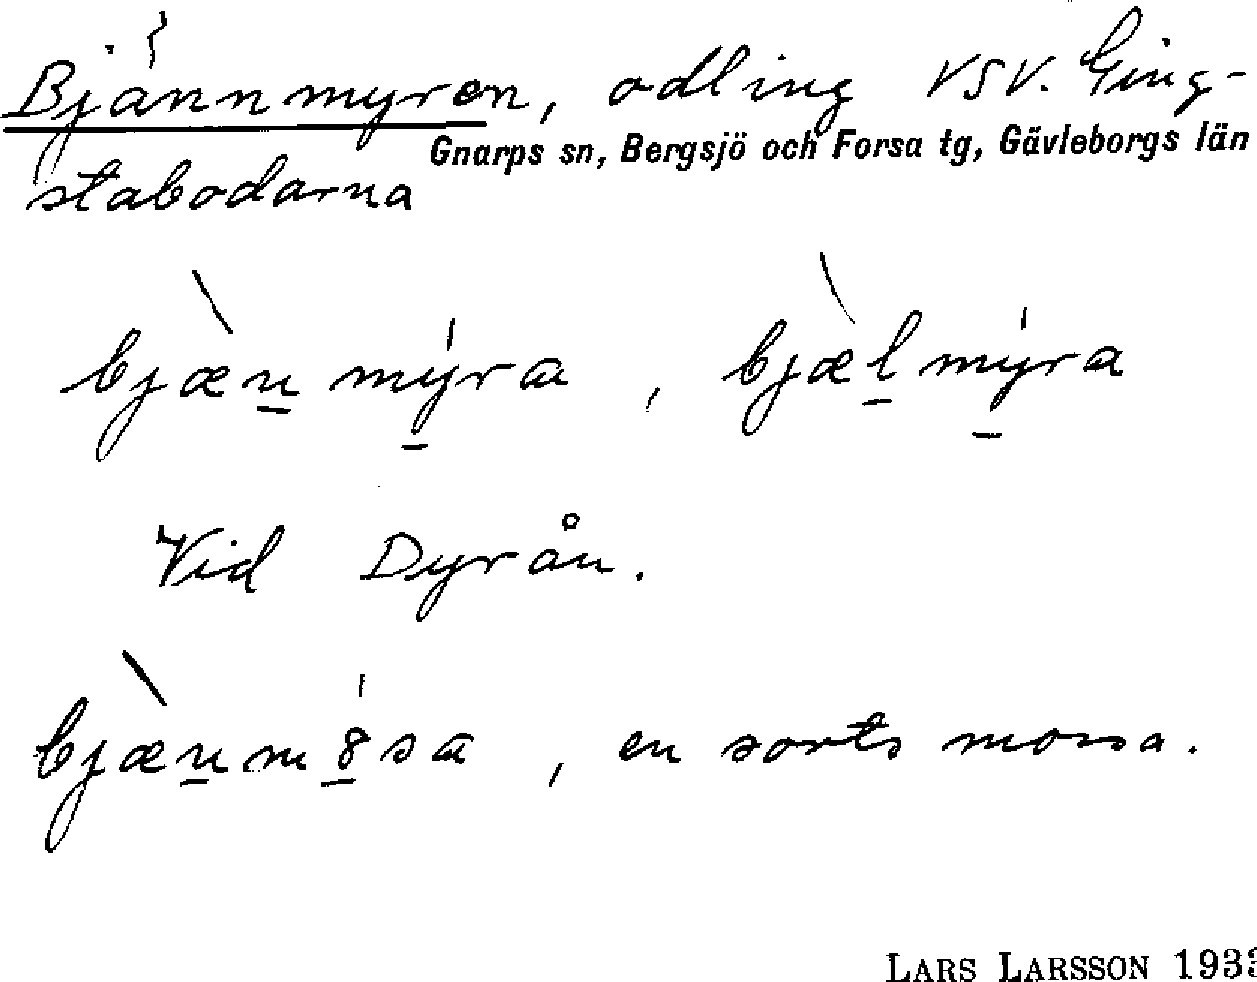 Bjännmyren, odling VSV. Ging-
Gnarps sn, Bergsjö och Forsa tg, Gävleborgs län
stabodarna
bjæ̀n̲mý̲ra, bjæ̀l̲mý̲ra
Vid Dyrån.
bjæ̀n̲m8̲́sa, en sorts mossa.
LARS LARSSON 1933